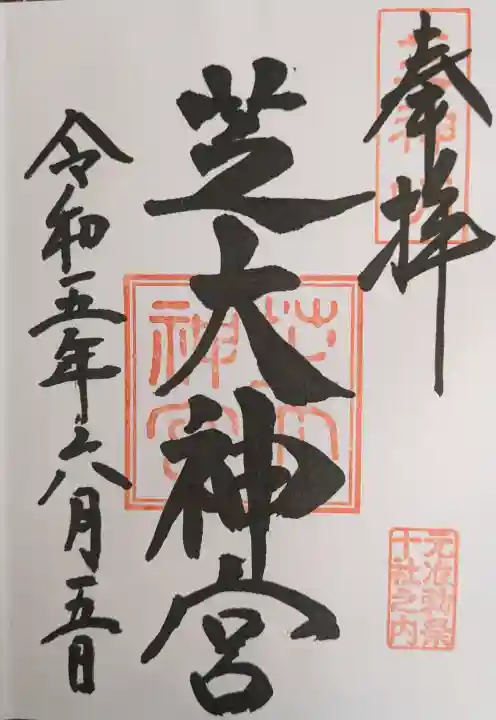 奉拝
芝大神宮
令和五年六月五日
芝大
神宮
元准勅祭
十社之内